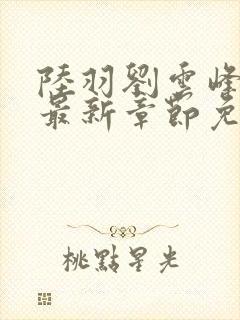 陸羽劉雲峰
最新章節免
桃點星光